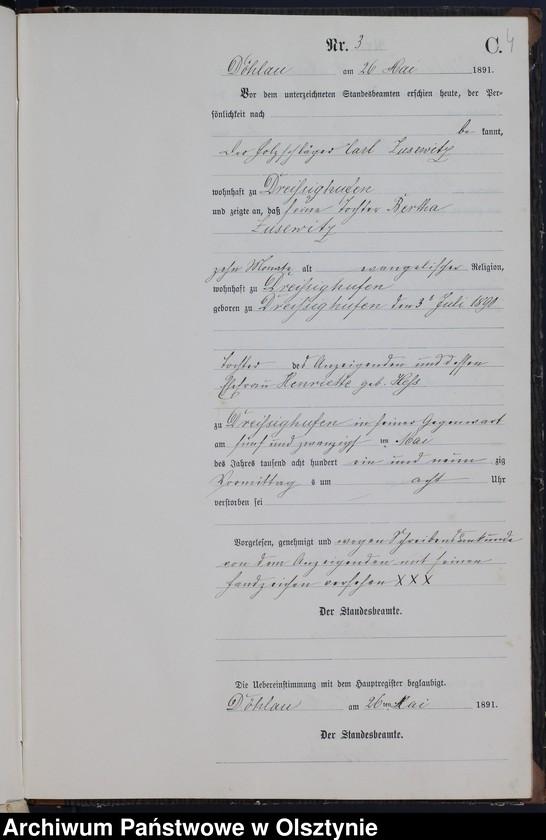 Nr. 3
C. 4
Döhlau am 26 Mai 1891.
Vor dem unterzeichneten Standesbeamten erschien heute, der Per-
sönlichkeit nach
be kannt,
der Holzschläger Carl Lusewitz
wohnhaft zu Dreißighufen
und zeigte an, daß seine Tochter Bertha
Lusewitz
zehn Monate alt evangelischer Religion,
wohnhaft zu Dreißighufen
geboren zu Dreißighufen den 3t Juli 1890
Tochter des Anzeigenden und dessen
Ehefrau Henriette geb. Heß
zu Dreißighufen in seiner Gegenwart
am fünf und zwanzigst en Mai
des Jahres tausend acht hundert ein und neun zig
Vormittag s um acht Uhr
verstorben sei
Vorgelesen, genehmigt und wegen Schreibensunkunde
von dem Anzeigenden mit seinen
Handzeichen versehen XXX
Der Standesbeamte.
Die Uebereinstimmung mit dem Hauptregister beglaubigt.
Döhlau am 26 ten Mai 1891.
Der Standesbeamte.
Archiwum Państwowe w Olsztynie